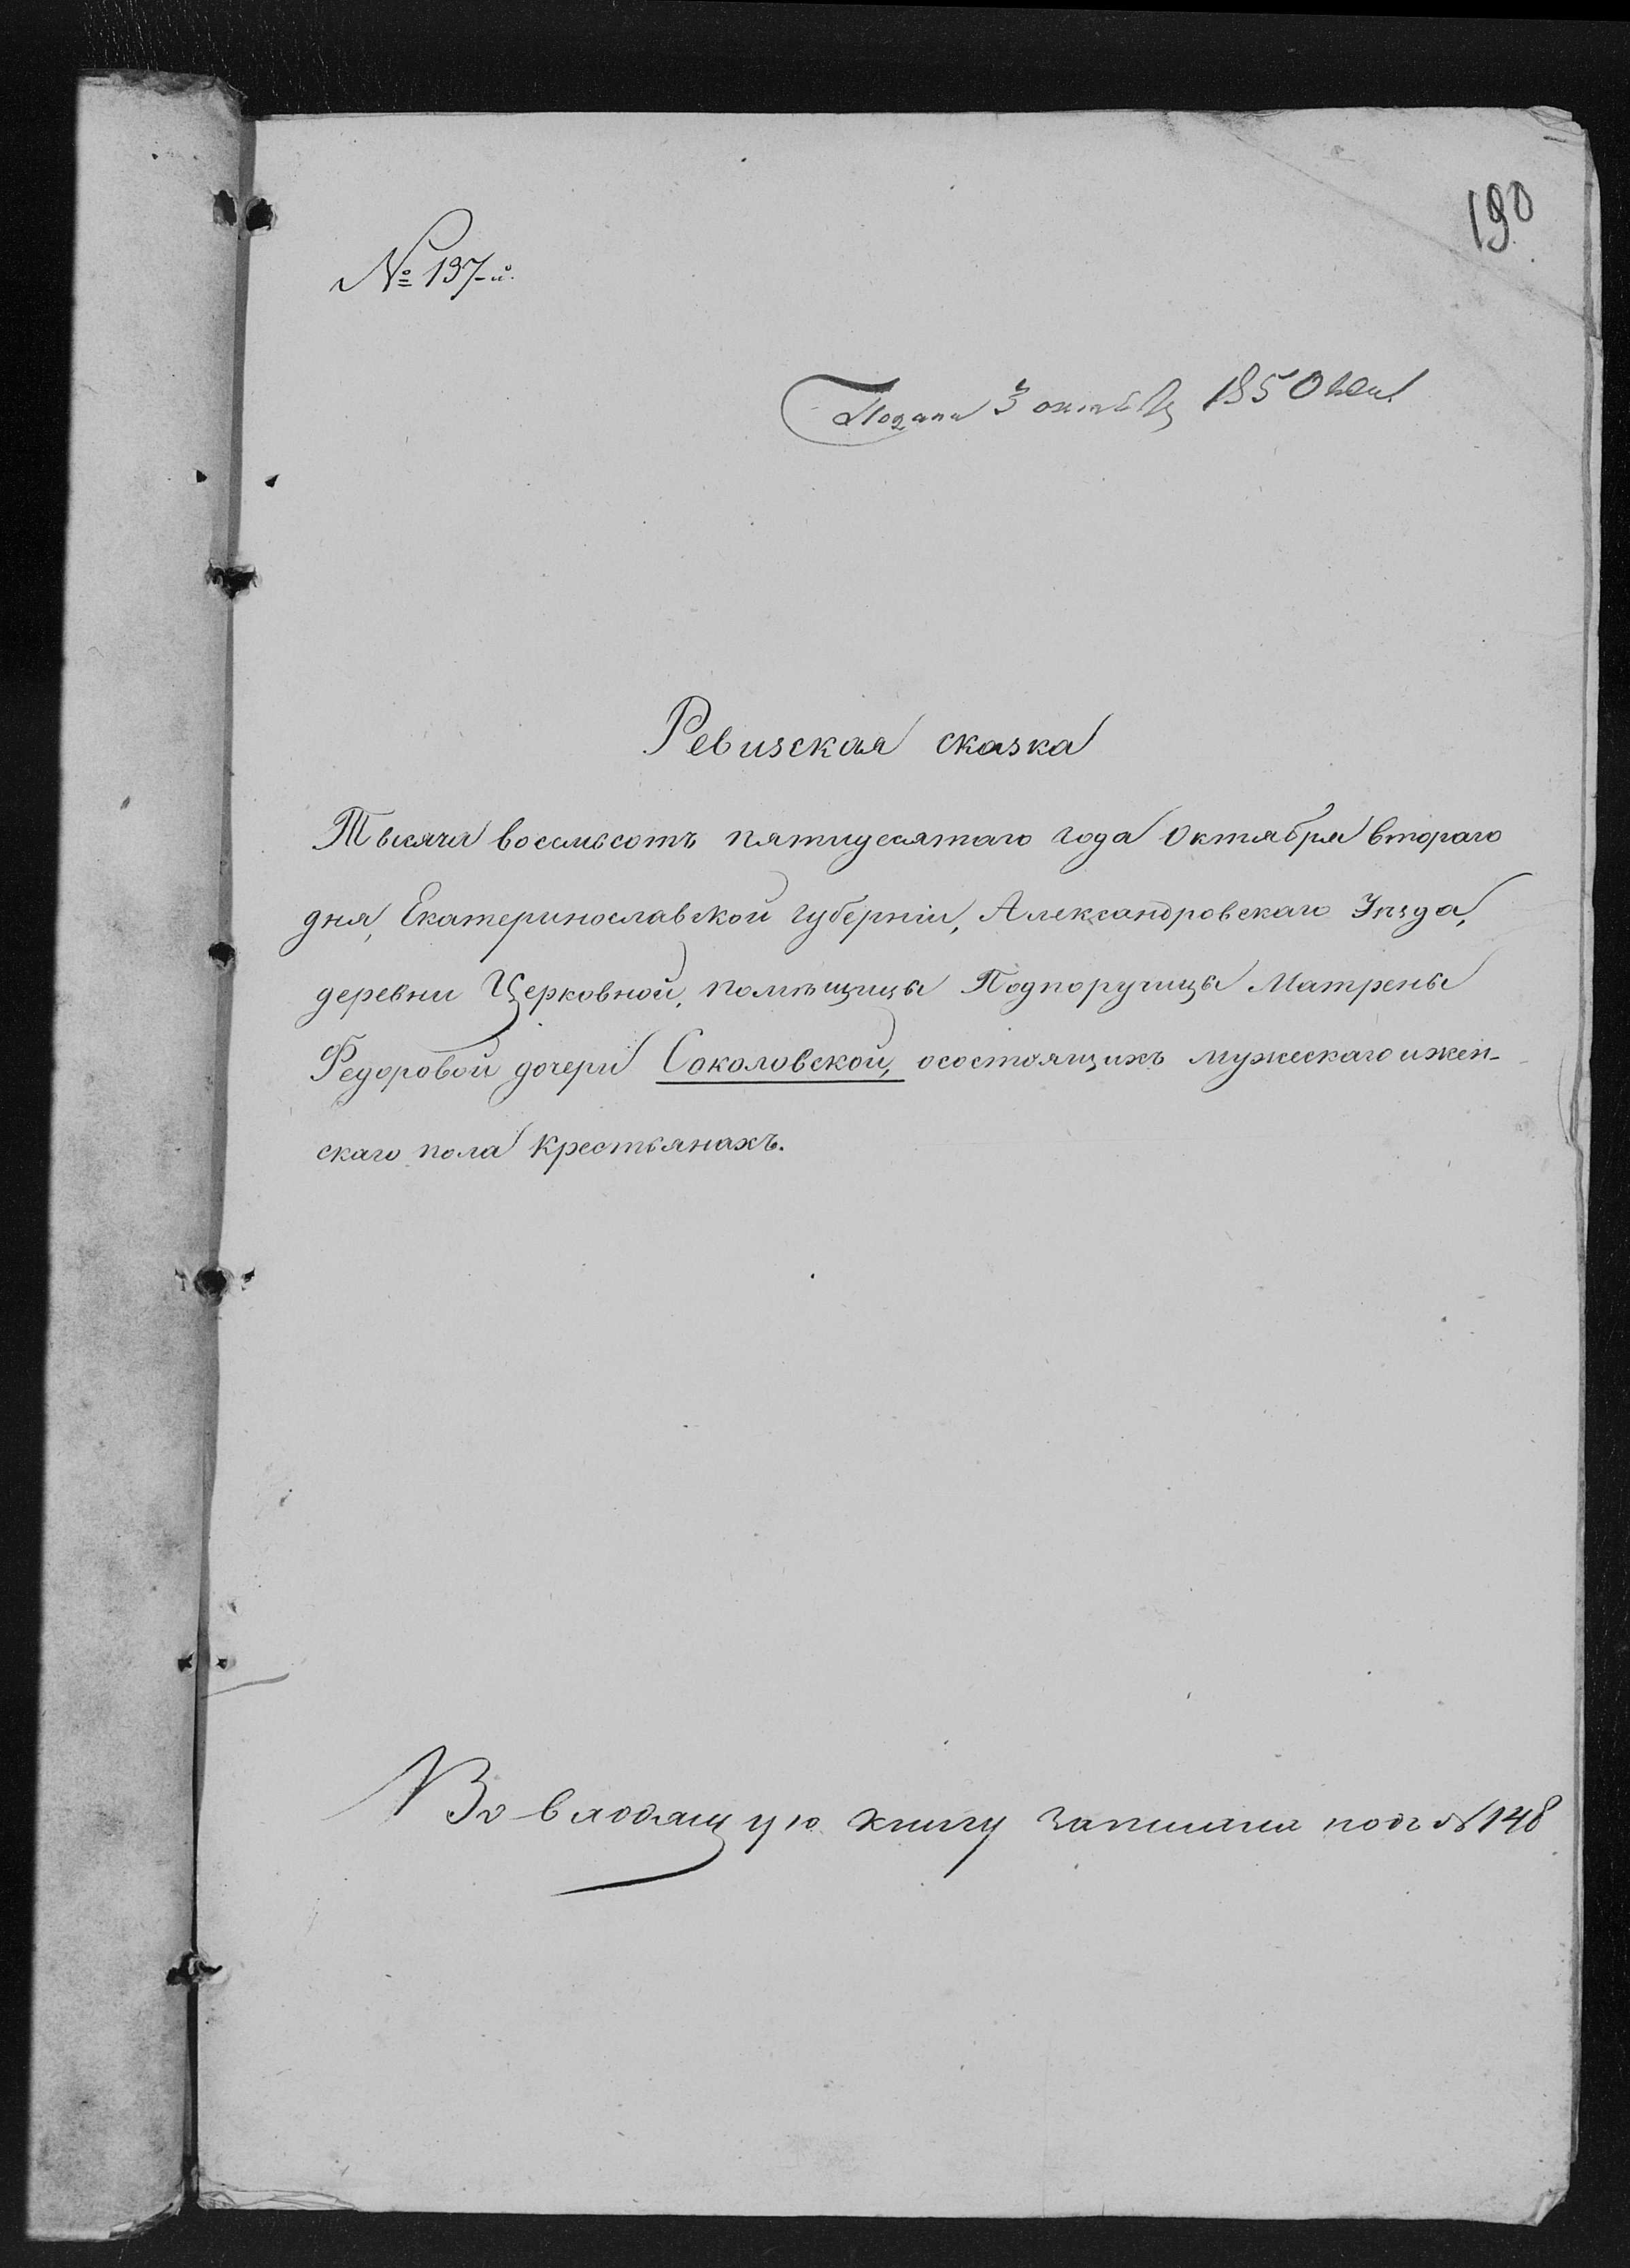 190
№ 137-й.
Подана 3 октября 1850 года
Ревизская сказка
Тысяча восемьсотъ пятидесятаго года Октября втораго
дня, Екатеринославской губерніи, Александровскаго Уѣзда,
деревни Церковной, помѣщицы Подпоручицы Матрены
Федоровой дочери Соколовской, осостоящихъ мужескаго ижен-
скаго пола крестьянахъ.
Во входящую книгу записана подъ № 148